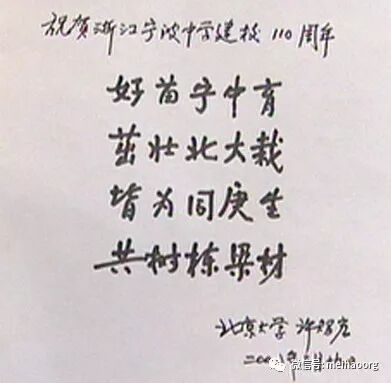 祝贺浙江宁波中学建校110周年
好苗宁中育
茁壮北大栽
皆为同庚生
共树栋梁材
北京大学 许智宏
微信号: meihaoorg